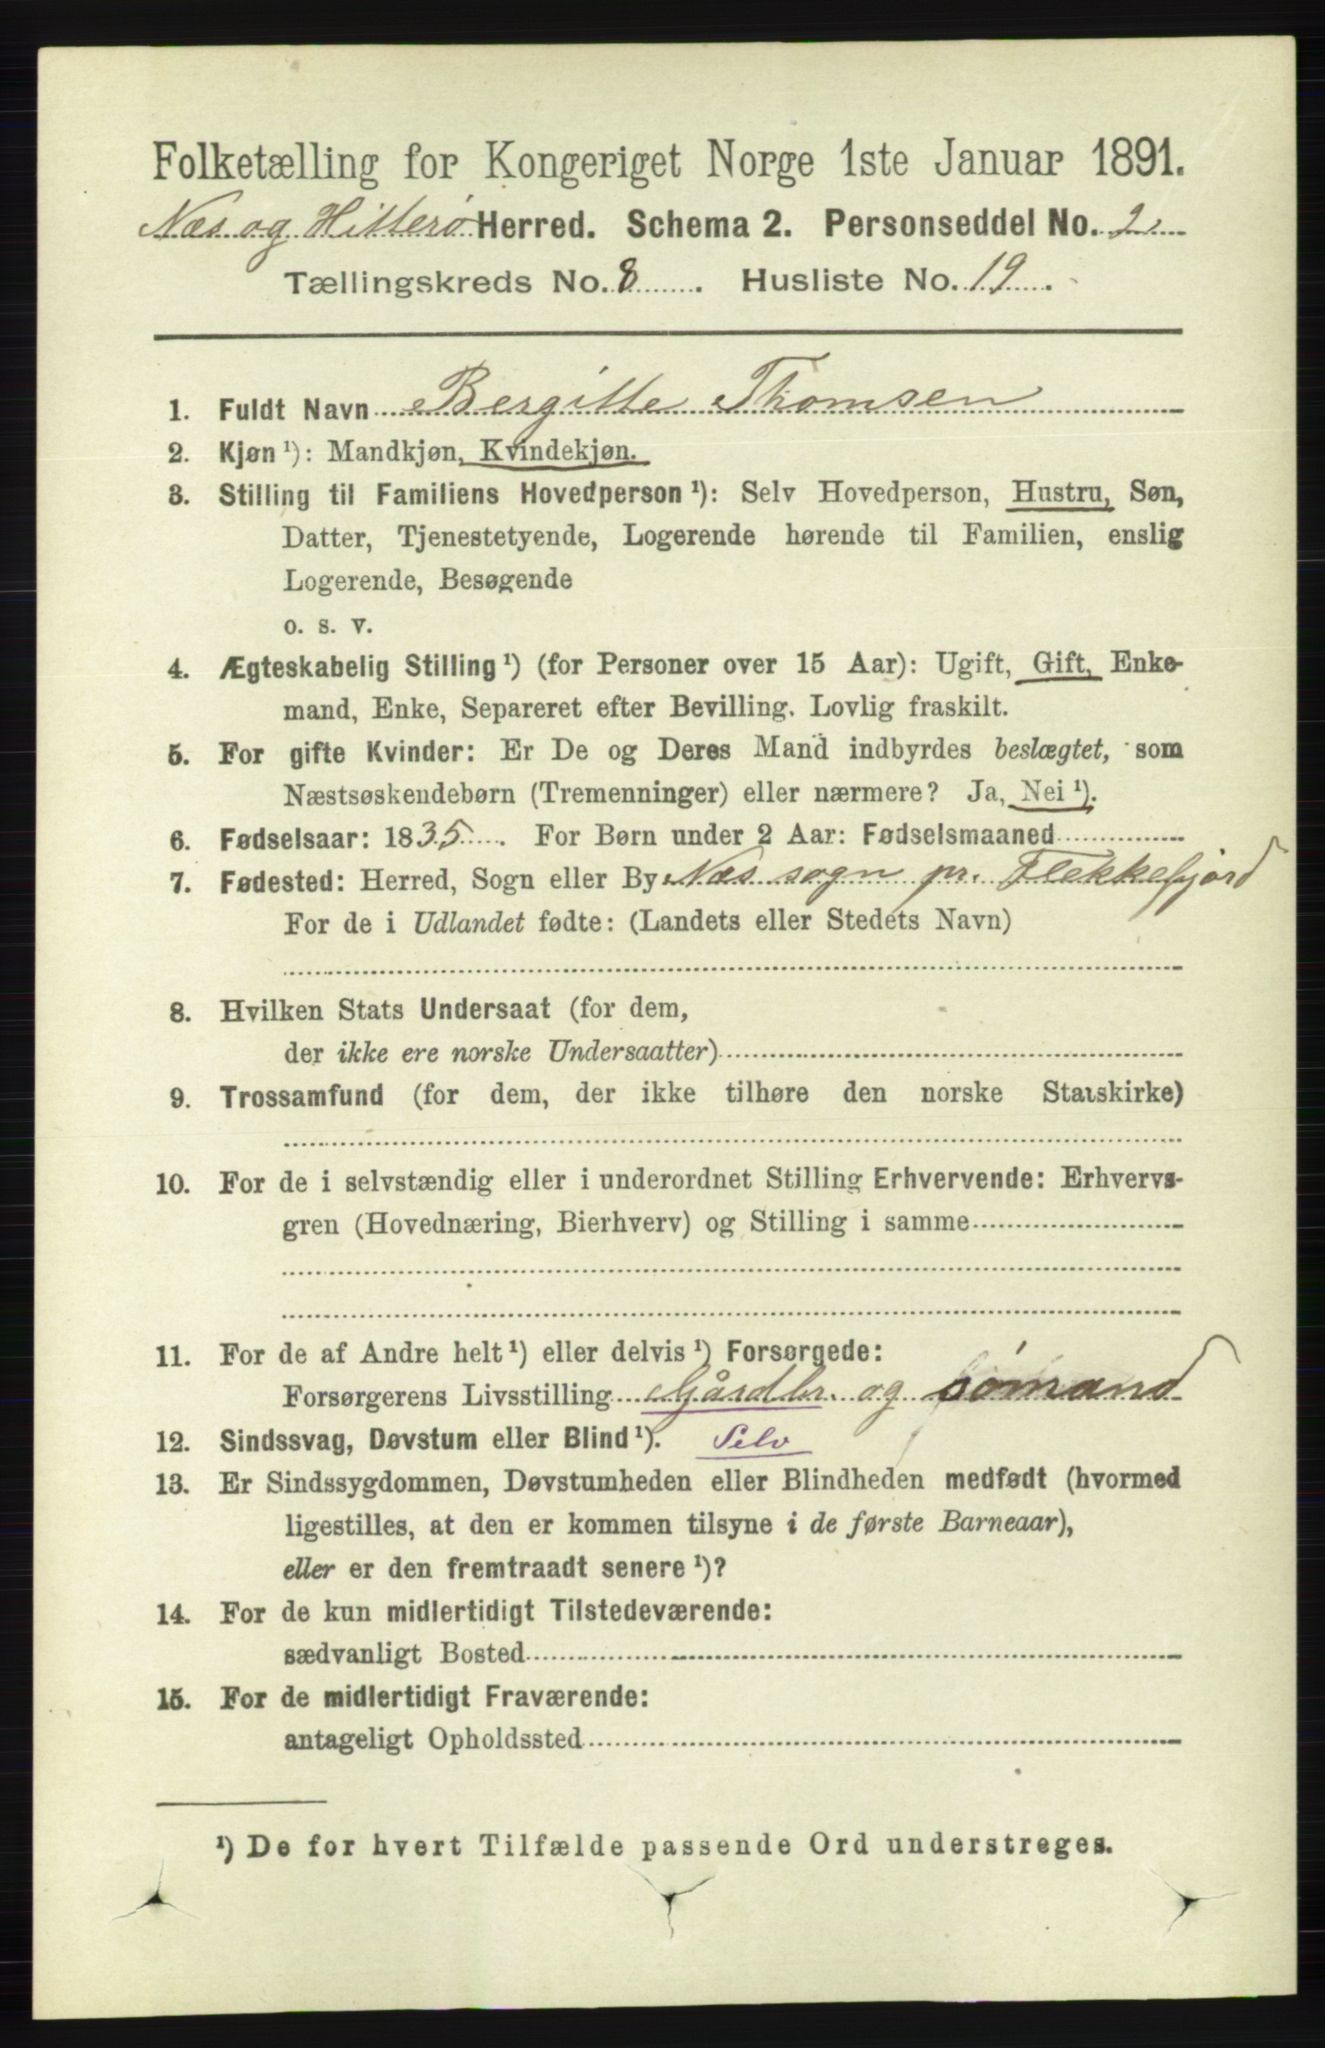 Folketælling for Kongeriget Norge 1ste Januar 1891.
Næs og Hitterø Herred. Schema 2. Personseddel No. 2
Tællingskreds No. 8. Husliste No. 19.
1. Fuldt Navn Bergitte Thomsen
2. Kjøn ¹): Mandkjøn, Kvindekjøn.
3. Stilling til Familiens Hovedperson ¹): Selv Hovedperson, Hustru, Søn,
Datter, Tjenestetyende, Logerende hørende til Familien, enslig
Logerende, Besøgende
o. s. v.
4. Ægteskabelig Stilling ¹) (for Personer over 15 Aar): Ugift, Gift, Enke-
mand, Enke, Separeret efter Bevilling. Lovlig fraskilt.
5. For gifte Kvinder: Er De og Deres Mand indbyrdes beslægtet, som
Næstsøskendebørn (Tremenninger) eller nærmere? Ja, Nei ¹).
6. Fødselsaar: 1835. For Børn under 2 Aar: Fødselsmaaned
7. Fødested: Herred, Sogn eller By Næs sogn pr. Flekkefjord
For de i Udlandet fødte: (Landets eller Stedets Navn)
8. Hvilken Stats Undersaat (for dem,
der ikke ere norske Undersaatter)
9. Trossamfund (for dem, der ikke tilhøre den norske Statskirke)
10. For de i selvstændig eller i underordnet Stilling Erhvervende: Erhvervs-
gren (Hovednæring, Bierhverv) og Stilling i samme
11. For de af Andre helt ¹) eller delvis ¹) Forsørgede:
Forsørgerens Livsstilling Gårdbr. og sømand
12. Sindssvag, Døvstum eller Blind ¹). Selv
13. Er Sindssygdommen, Døvstumheden eller Blindheden medfødt (hvormed
ligestilles, at den er kommen tilsyne i de første Barneaar),
eller er den fremtraadt senere ¹)?
14. For de kun midlertidigt Tilstedeværende:
sædvanligt Bosted
15. For de midlertidigt Fraværende:
antageligt Opholdssted
¹) De for hvert Tilfælde passende Ord understreges.